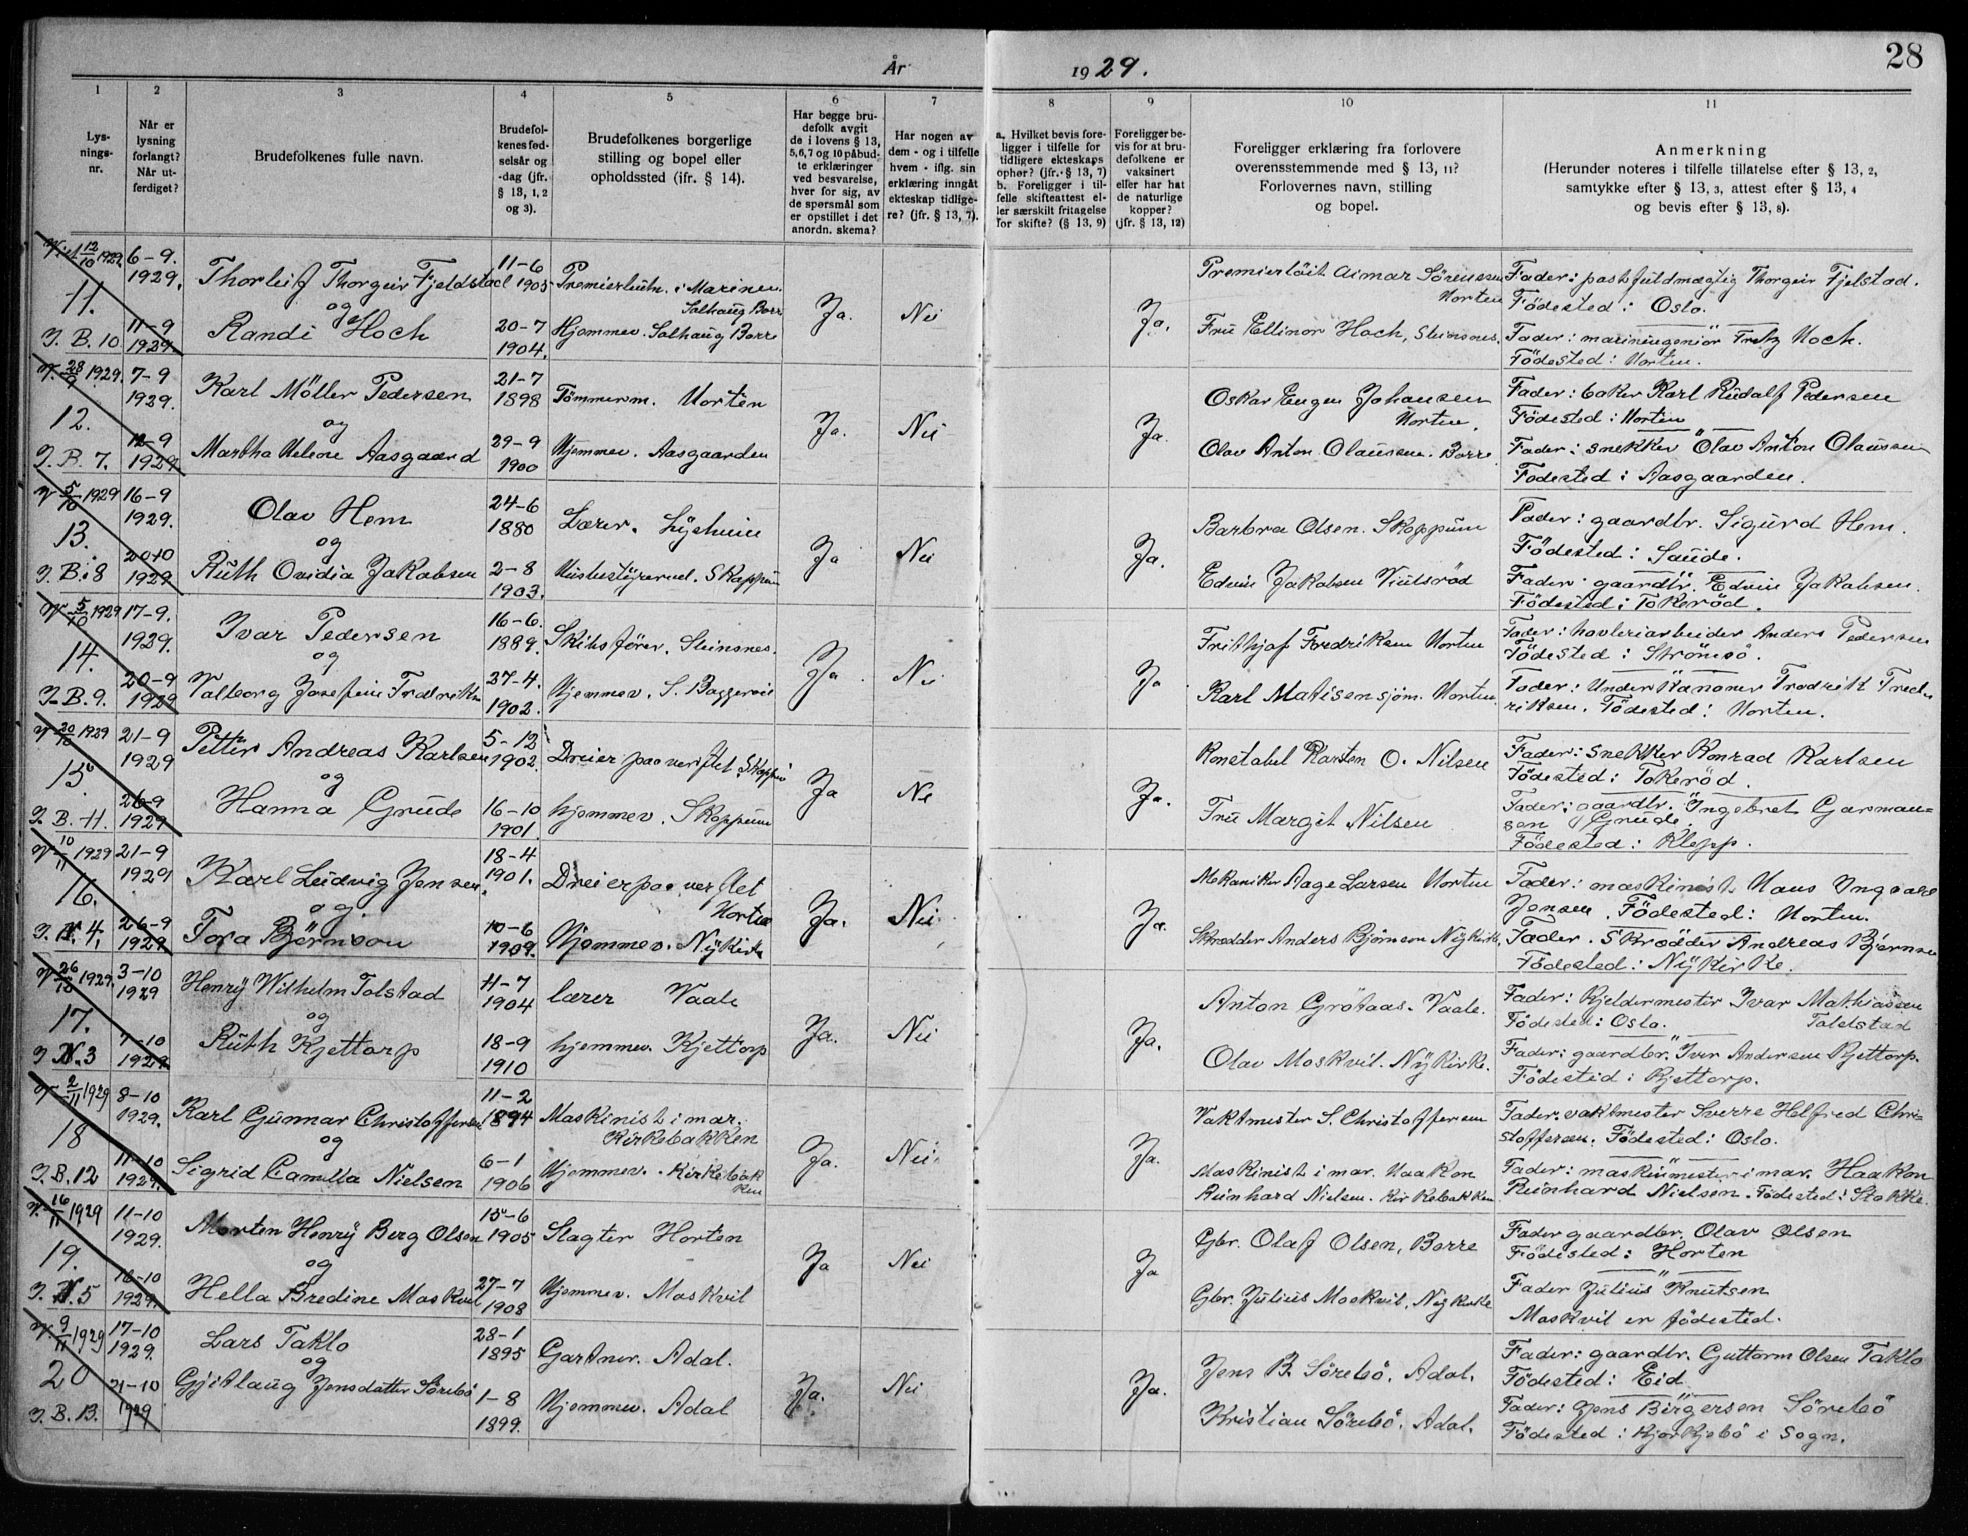 28
År 1929.
1
Lys-
nings-
nr.
2
Når er
lysning
forlangt?
Når ut-
ferdiget?
3
Brudefolkenes fulle navn.
4
Brudefol-
kenes fød-
selsår og
-dag (jfr.
§ 13, 1, 2
og 3).
5
Brudefolkenes borgerlige
stilling og bopel eller
opholdssted (ifr. § 14).
6
Har begge bru-
defolk avgit
de i lovens § 13,
5,6,7 og 10 påbud-
te erklæringer
ved besvarelse,
hver for sig, av
de spørsmål som
er opstillet i det
anordn. skema?
7
Har nogen av
dem - og i tilfelle
hvem - iflg. sin
erklæring inngått
ekteskap tidlige-
re? (jfr. § 13, 7).
8
a. Hvilket bevis fore-
ligger i tilfelle for
tidligere ekteskaps
ophør? (jfr. § 13, 7)
b. Foreligger i til-
felle skifteattest el-
ler særskilt fritagelse
for skifte? (§ 13, 9)
9
Foreligger be-
vis for at bru-
defolkene er
vaksinert
eller har hat
de naturlige
kopper?
(jfr. § 13, 12)
10
Foreligger erklæring fra forlovere
overensstemmende med § 13, 11?
Forlovernes navn, stilling
og bopel.
11
Anmerkning
(Herunder noteres i tilfelle tillatelse efter § 13, 2,
samtykke efter § 13, 3, attest efter § 13, 4
og bevis efter § 13, 8).
12/10 1929.
11.
J. B. 10
6-9.
1929.
11-9
1929
Thorleif Thorgeir Fjeldstad
og
Randi Hoch
11-6
1905
20-7
1904.
Premierløitn. i Marinen.
Solhaug Borre
Hjemmev. Solhaug Borre
Ja.
Nei
Ja.
Premierløit Aimar Sörensen
Horten
Fru Ellinor Hoch, Steinsnes.
Fader: postfuldmægtig Thorgeir Fjelstad.
Födested: Oslo.
Fader: marineingeniör Fritz Hoch.
Födested: Horten.
V. 28/9 1929.
12.
J. B. 7.
7-9
1929.
12-9
1929
Karl Möller Pedersen
og
Martha Helene Aasgaard
21-7
1898
29-9
1900
Tømmerm. Horten
Hjemmev. Aasgaarden
Ja.
Nei
Ja.
Oskar Eugen Johansen
Horten.
Olav Anton Olaussen. Borre
Fader: baker Karl Rudolf Pedersen
Födested: Horten
Fader: snekker Olav Anton Olaussen
Födested: Aasgaarden.
V 5/10 1929
13.
J. B. 8
16-9
1929.
20-10
1929
Olav Hem
og
Ruth Ovidia Jakobsen
24-6
1880
2-8
1903.
Lærer. Lysheim
Husbestyrerind. Skoppum
Ja
Nei
Ja.
Barbra Olsen. Skoppum
Edvin Jakobsen Viulsröd
Fader: gaardbr. Sigurd Hem.
Födested: Saude.
Fader: gaardbr. Edvin Jakobsen.
Födested: Tokeröd.
V 5/10 1929
14.
J. B. 9.
17-9.
1929.
20-9
1929
Ivar Pedersen
og
Valborg Josefine Fredriksen
16-6.
1889.
27-4.
1902.
Skibsförer. Steinsnes.
Hjemmev. S. Baggerøe
Ja
Nei
Ja
Frithjof Fredriksen Horten
Karl Matisen sjöm. Horten.
Fader: havneriarbeider Anders Pedersen
Födested: Strömsö.
Fader: Underkanoner Fredrik Fred-
riksen. Födested: Horten.
V 20/10 1929
15.
J. B. 11.
21-9
1929
26-9
1929
Petter Andreas Karlsen
og
Hanna Grude
5-12
1902.
16-10
1901.
Dreier paa verftet Skoppum
hjemmev. Skoppum
Ja
Nei
Ja.
Konstabel Karsten O. Nilsen
Fru Margit Nilsen
Fader: Snekker Konrad Karlsen
Födested: Tokeröd.
Fader: gaardbr. Ingebret Garman-
sen Grude.
Födested: Klepp.
V 10/11 1929
16.
J. N. 4.
21-9
1929
26-9
1929
Karl Ludvig Jensen.
og
Tora Björnson
18-4
1901.
10-6
1909.
Dreier paa verftet
Horten
Hjemmev. Nykirke
Ja.
Nei.
Ja.
Mekaniker Aage Larsen Horten
Skrædder Anders Björnson Nykirke.
Fader: maskinist Hans Ingvald
Jensen. Födested: Horten.
Fader. Skrædder Andreas Björnsen
Födested: Nykirke.
V 26/10 1929.
17.
J N. 3
3-10
1929
7-10
1929
Henry Wilhelm Tolstad
og
Ruth Kjettorp
4-7
1904
18-9
1910
lærer Vaale
hjemmev. Kjettorp
Ja.
Nei
Ja.
Anton Grötaas. Vaale.
Olav Moskvil. Nykirke.
Fader: Kjeldermester Ivar Mathiassen
Födested: Oslo. Toldstad
Fader: gaardbr. Iver Andersen Kjettorp.
Födested: Kjettorp.
V 2/11 1929
18
J. B. 12
8-10
1929.
11-10
1929.
Karl Gunnar Christoffersen
og
Sigrid Camilla Nielsen
11-2
1894
6-1
1906
Maskinist i mar.
Kirkebakken
Hjemmev. Kirkebak
ken
Ja.
Nei.
Ja.
Vaktmester S. Christoffersen
Maskinist i mar. Haakon
Reinhard Nielsen. Kirkebakken
Fader: vaktmester Sverre Helfred Chri-
stoffersen. Födested: Oslo.
Fader: maskinmester i mar. Haakon
Reinhard Nielsen. Födested: Stokke.
V. 16/11 1929
19.
J. N. 5
11-10
1929.
16-10
1929.
Morten Henry Berg Olsen
og
Hella Bredine Moskvil
15-6
1905
27-7
1908
Slagter Horten
Hjemmev. Moskvil
Ja
Nei
Ja
Gbr. Olaf Olsen, Borre
Gbr. Julius Moskvil, Nykirke
Fader gaardbr. Olav Olsen
Födested: Horten
Fader Julius Knutsen
Moskvil er födested.
V. 9/11 1929
20
J. B. 13.
17-10
1929.
21-10
1929
Lars Taklo
og
Gjitlaug Jensdatter Sörebö
28-1
1895
1-8
1899.
Gartner. Adal.
Hjemmev. Adal
Ja.
Nei
Ja.
Jens B. Sörebö. Adal.
Kristian Sörebö. Adal.
Fader: gaardbr. Guttorm Olsen Taklo
Födested: Eid
Fader: Jens Birgersen Sörebö
Födested: Kjorkjebö i Sogn.